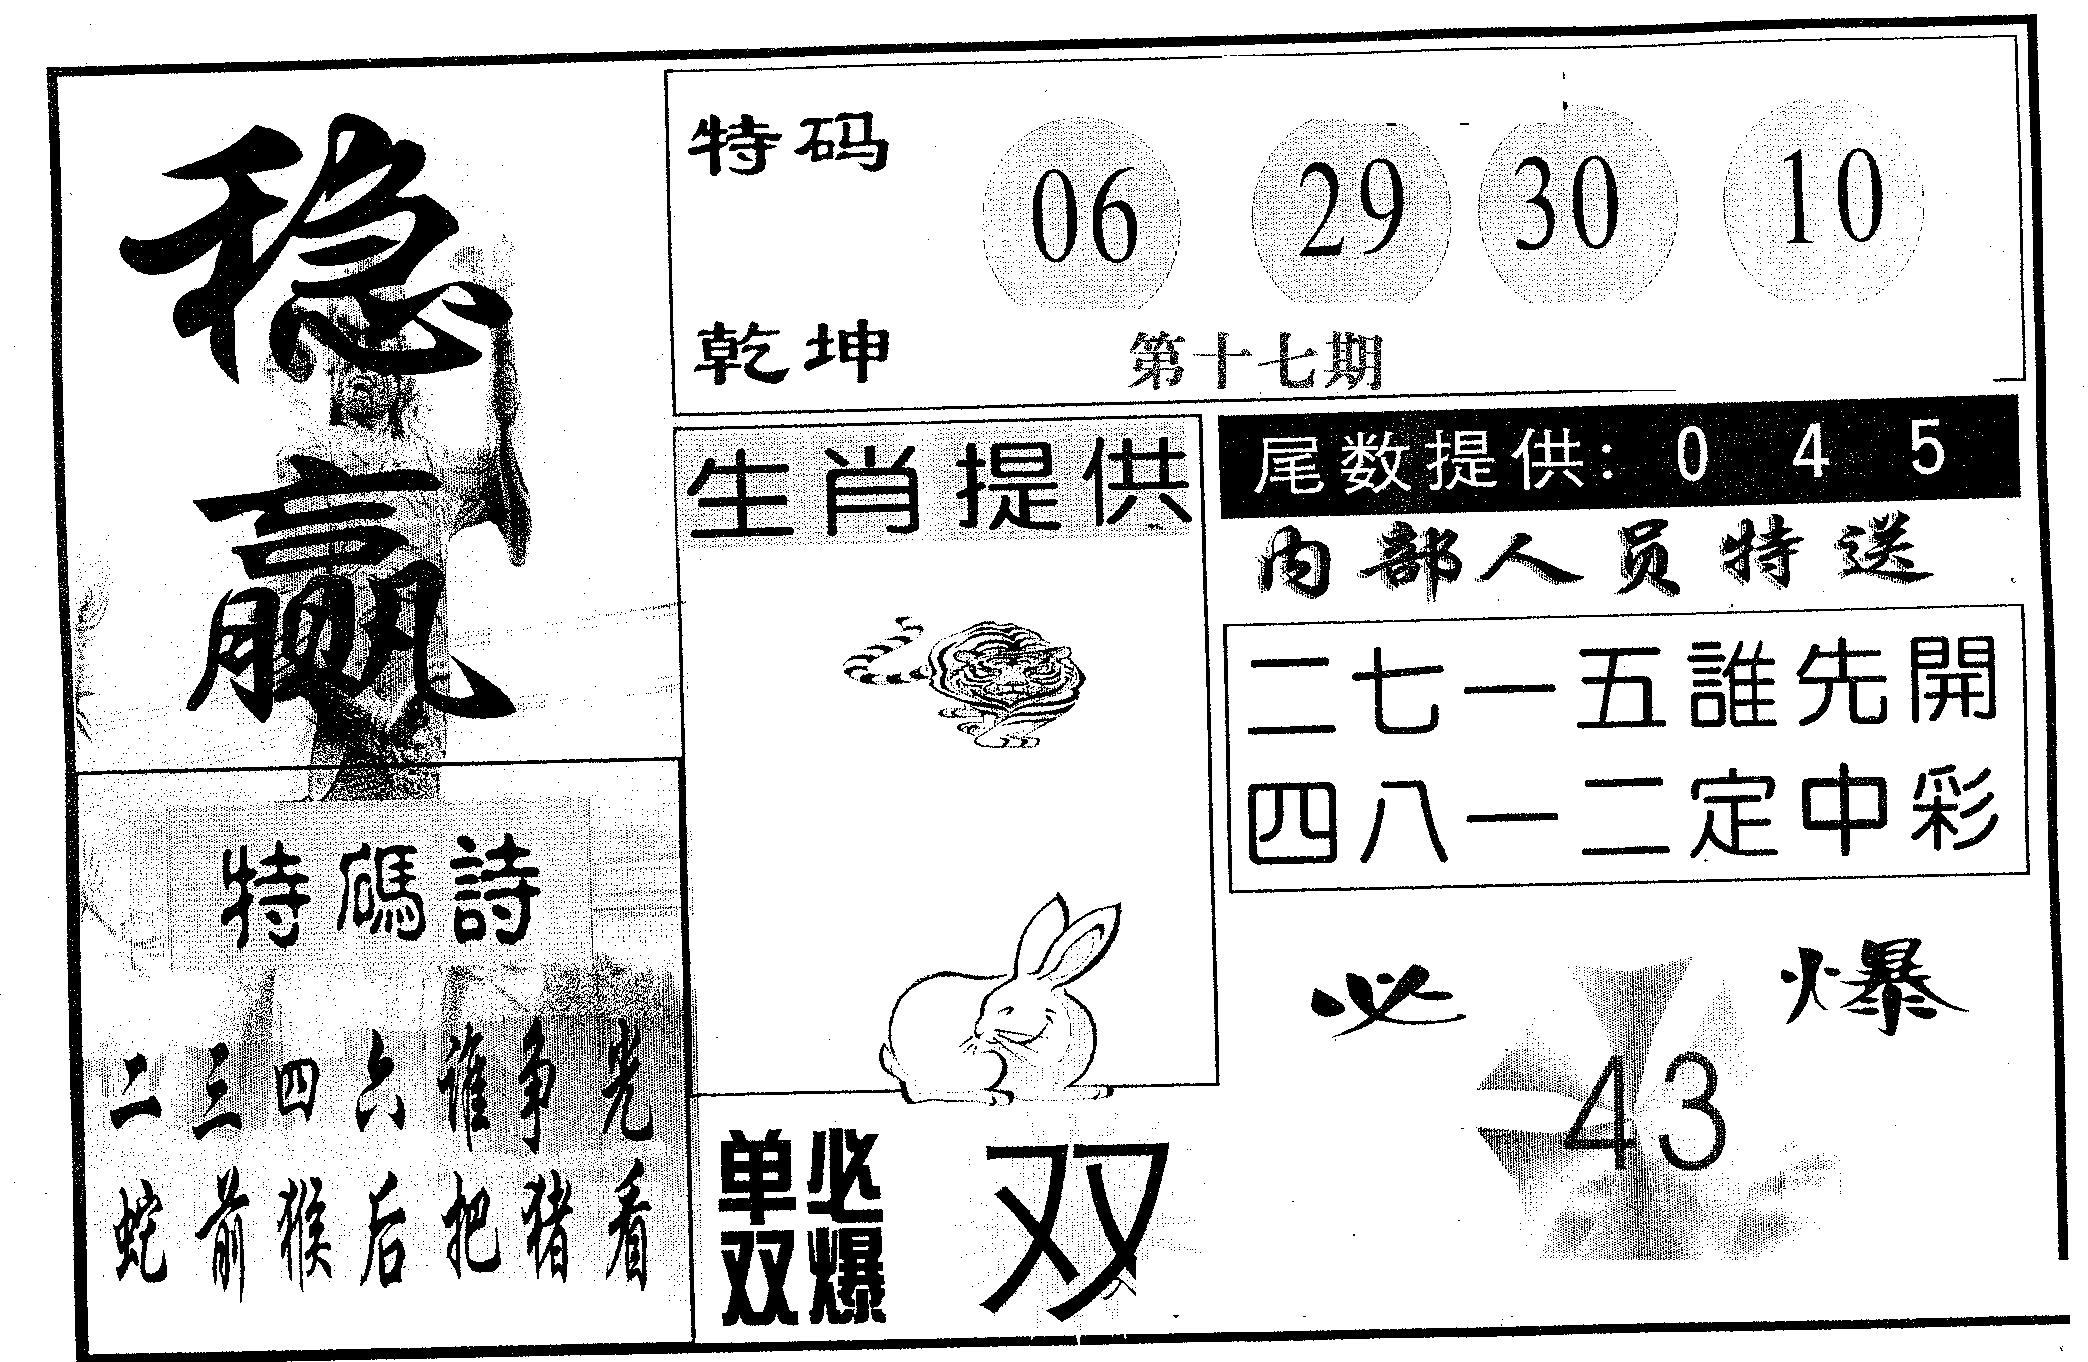 稳赢
特码 06 29 30 10
乾坤 第十七期
生肖提供
尾数提供: 0 4 5
内部人员特送
二七一五誰先開
四八一二定中彩
必爆
43
特碼詩
二三四六谁争先
蛇前猴后把猪看
单双必爆 双